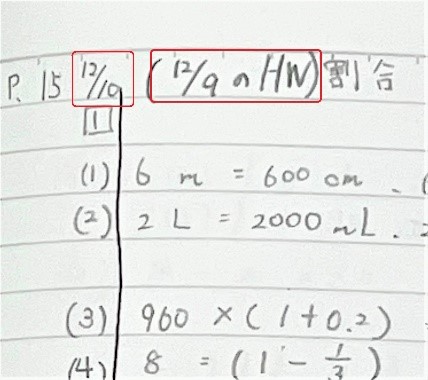 P. 15 12/10 (12/9 の HW) 割合
1
(1) 6 m = 600 cm .
(2) 2 L = 2000 mL .
(3) 960 × ( 1 + 0.2 )
(4) 8 = ( 1 - 1/3 )